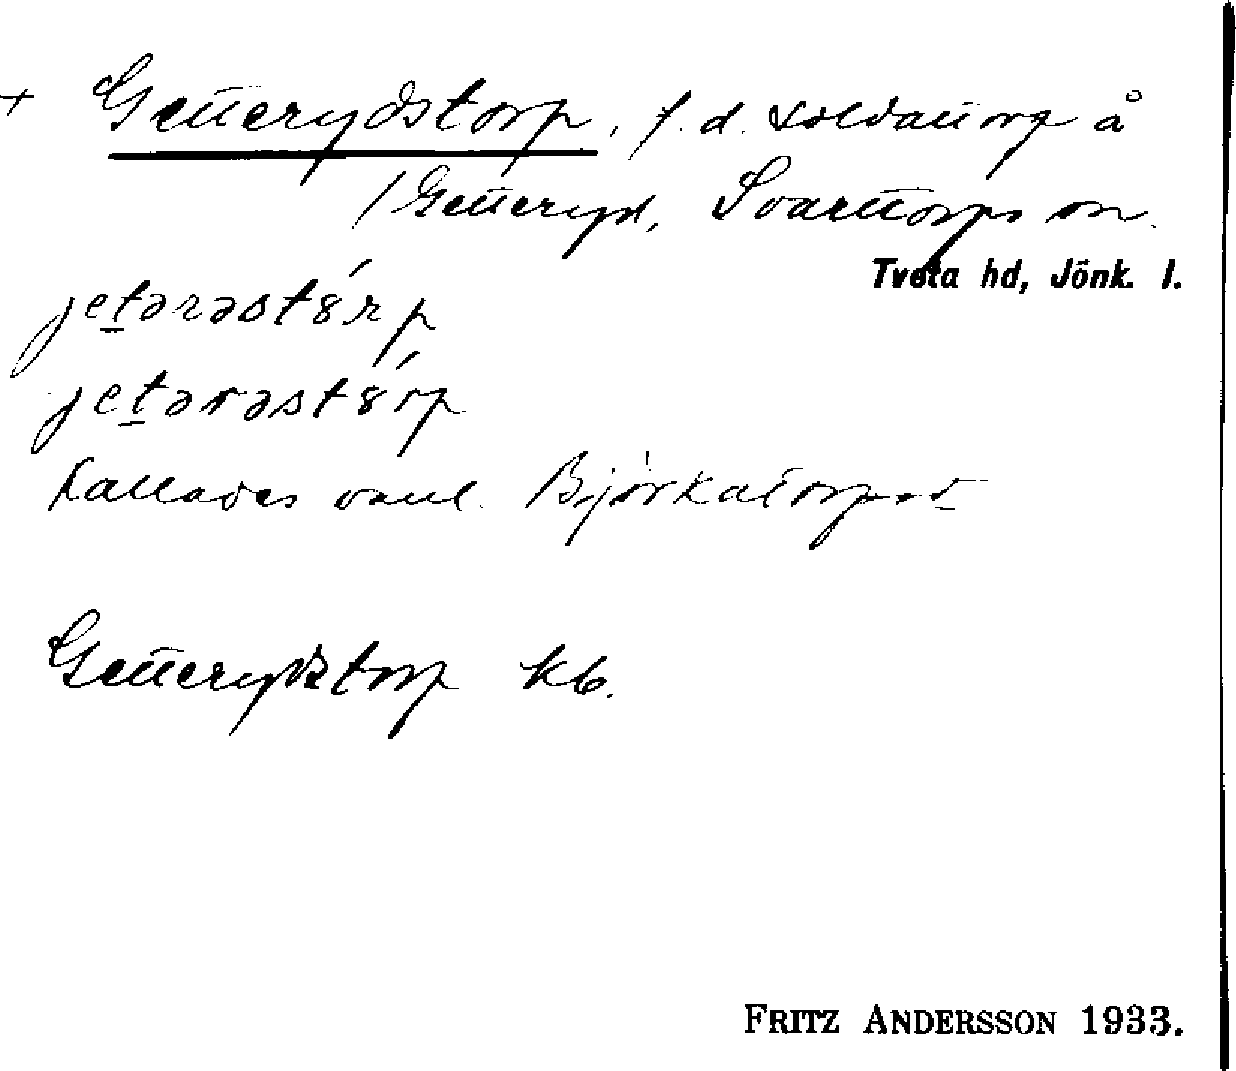 + Getterydstorp, f.d. soldattorp å
/ Getteryd, Svarttorps sn.
Tveta hd, Jönk. l.
jetərəstȣ́rp
jetərəstȣ́rp
kallades vanl. Björkatorpet
Getterydstorp kb.
FRITZ ANDERSSON 1933.